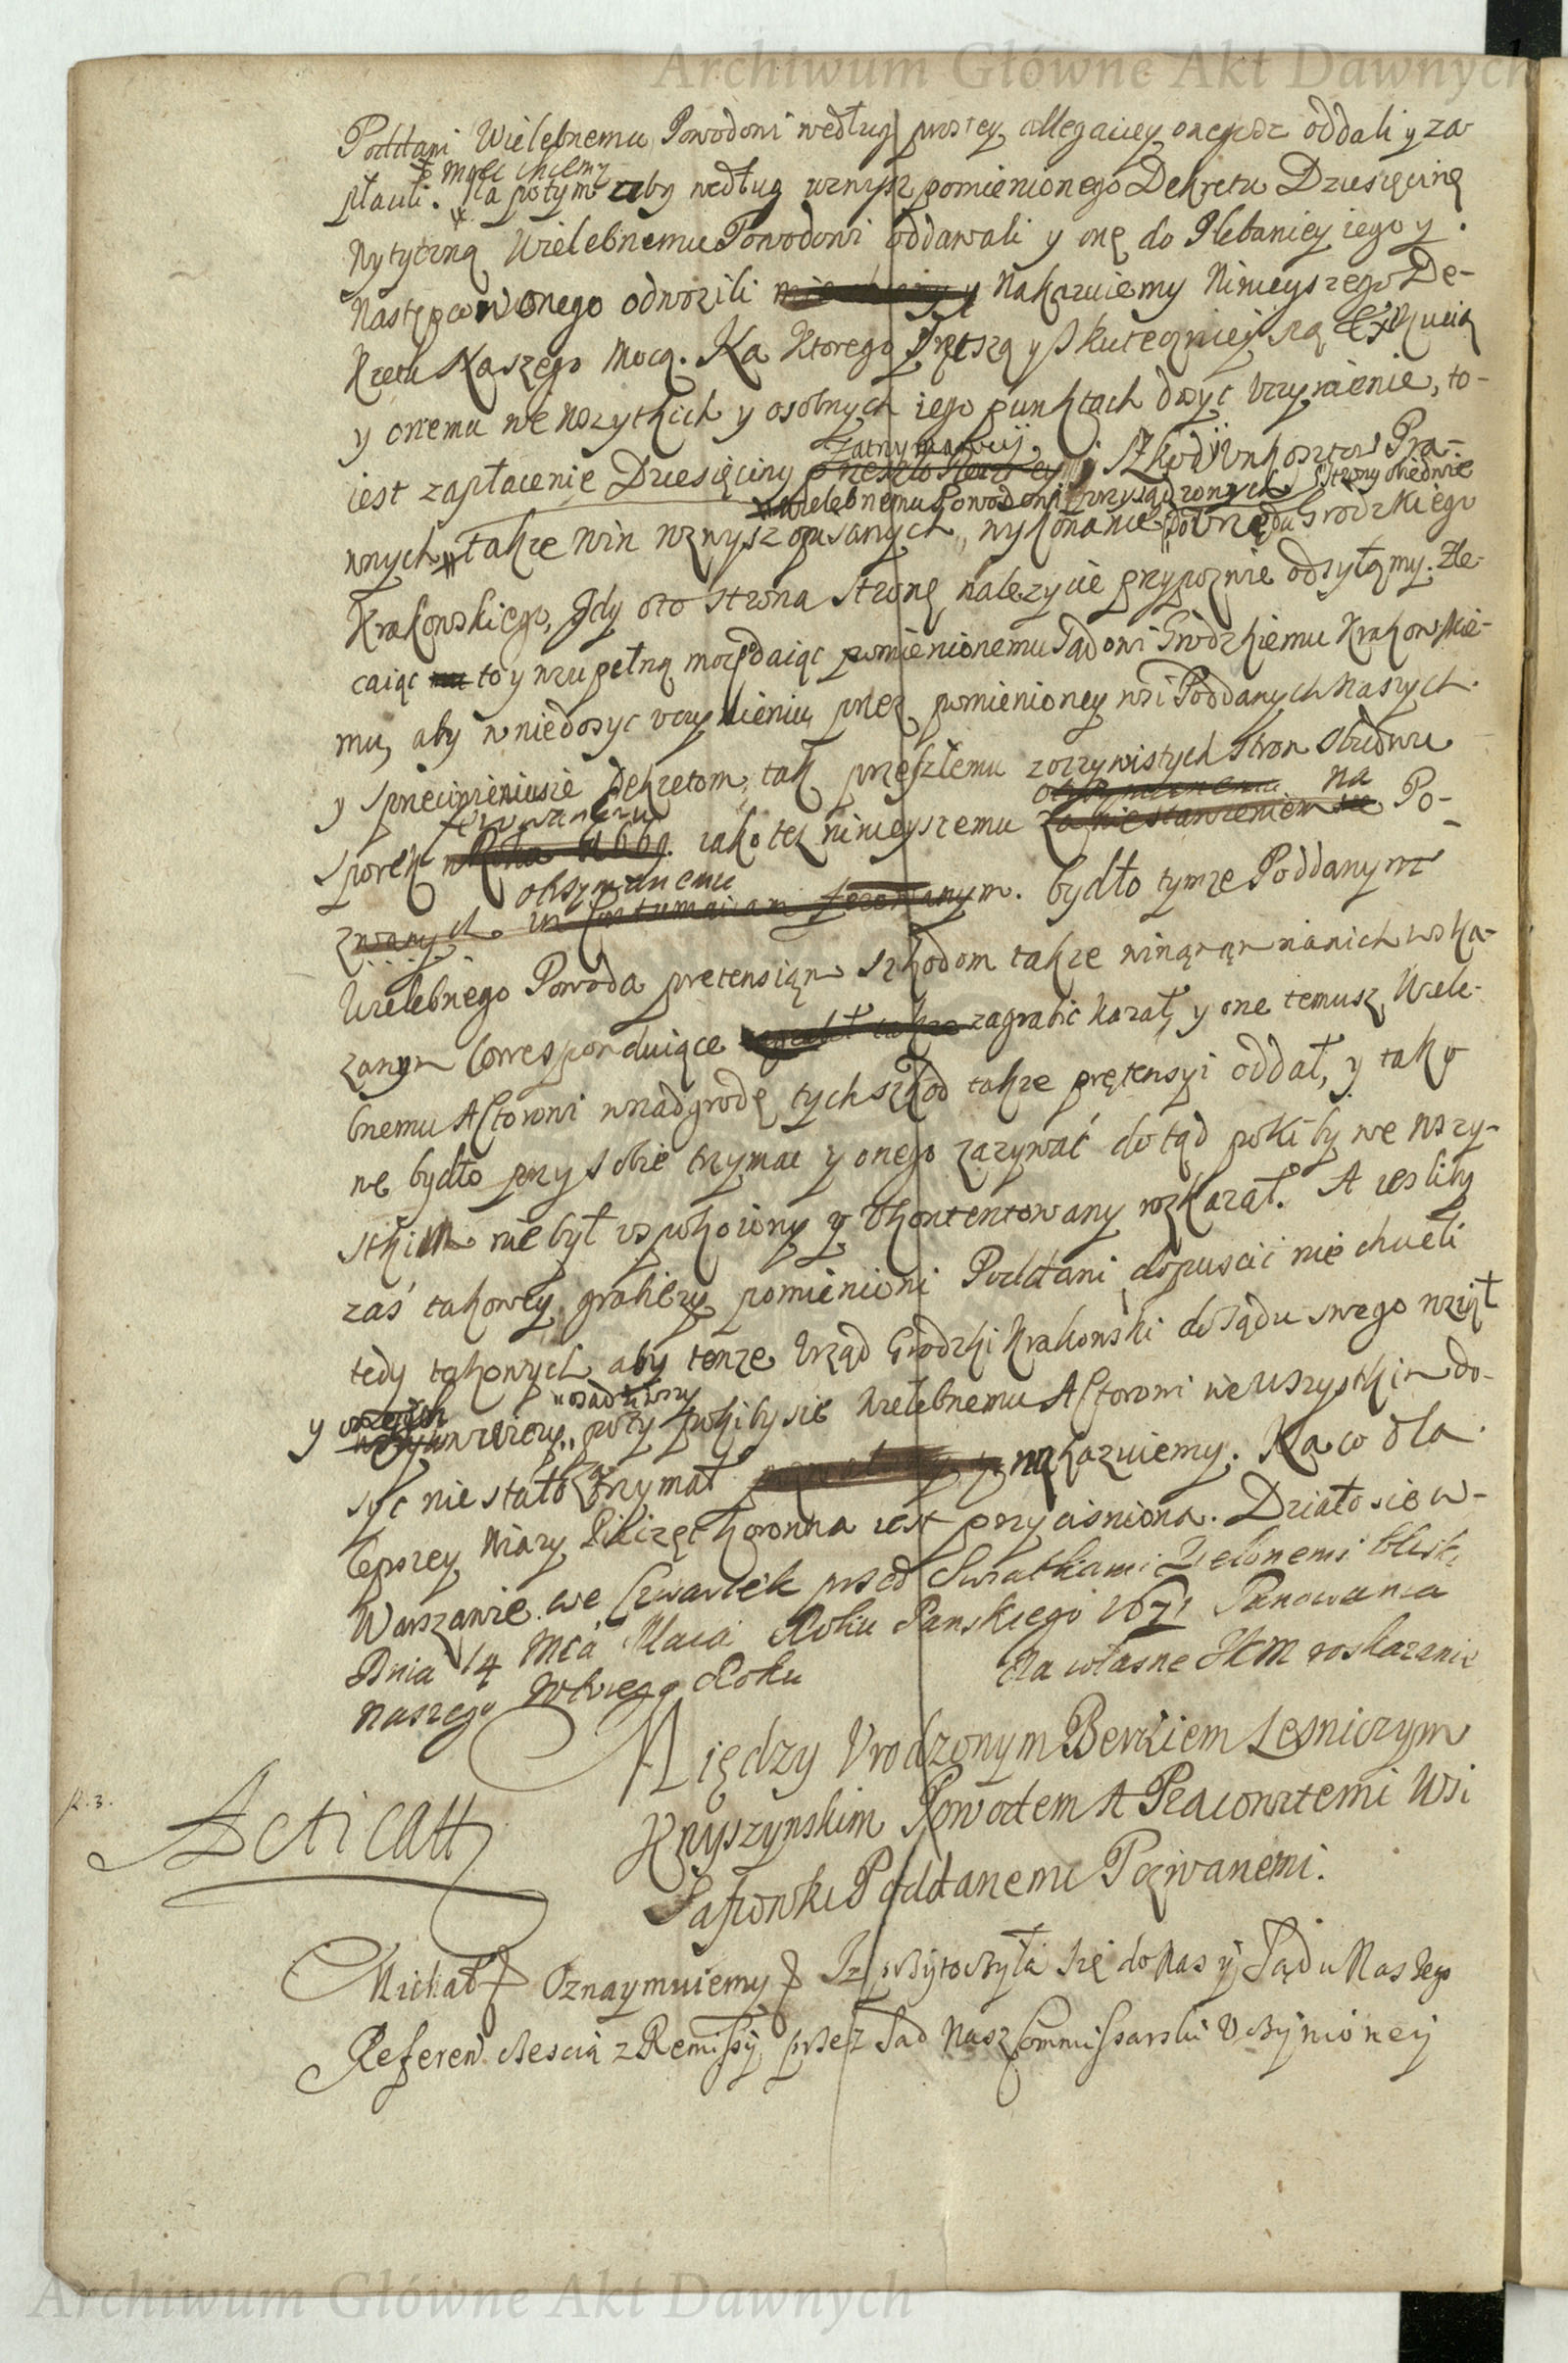 Archiwum Główne Akt Dawnych
Poddani Wielebnemu Powodowi według prostey allegaciey onegosz oddali y za-
# Miec chcemy
płacili. Na potym aby według wzwysz pomienionego Dekretu Dziesięcinę
Wytyczną Wielebnemu Powodowi oddawali y onę do Plebaniey iego y
Następców onego odwozili y Nakazuiemy Ninieyszego De-
kretu Naszego Mocą. Na ktorego Prętszą y skutecznieyszą Exekucią
y onemu we wszytkich y osobnych iego punktach dosyc uczynienie, to-
zatrzymaney
iest zapłacenie Dziesięciny przeszłoroczney Szkod y Unkosztow Pra-
Wielebnemu Powodowi przysądzonych Strony obiedwie
wnych, także win wzwysz opisanych, wykonanie do Urzędu Grodzkiego
Krakowskiego, Gdy oto strona stronę należycie przypozwie odsyłamy. Zle-
caiąc to y zupełną moc daiąc pomienionemu Sądowi Grodzkiemu Krakowskie-
mu, aby w niedosyc uczynieniu przez pomienioney wsi Poddanych Naszych
y sprzeciwieniu się Dekretom, tak przeszłemu z oczywistych Stron Obudwu
otrzymanemu na
sporek Roku 1669. iako tez ninieyszemu za niestawieniem się Po-
otrzymanemu
zwanych in Contumaciam ferowanym. bydło tymze Poddanym
Wielebnego Powoda pretensiom szkodom takze winom na nich wska-
zanym Correspondujące zagrabic kazał, y one temusz Wiele-
bnemu Actorowi w nadgrodę tych szkod takze prętensyi oddał, y tako-
we bydło przy sobie trzymac y onego zazywać dotąd pokiby we wszy-
stkim nie był uspokoiony y Ukontentowany roskazał. A iesliby
zaś takowey grabiezy pomienieni Poddani dopuscić nie chcieli
tedy takowych aby tenze Urząd Grodzki Krakowski do Sądu swego wziął
osadziwszy
y w wiezy, poty pokiby się Wielebnemu Actorowi we wszystkim do-
syc nie stało trzymał nakazuiemy. Na co dla
lepszey Wiary Pieczęc Koronna iest przycisniona. Działo się w
Warszawie we Czwartek przed Swiatkami Zielonemi blisko
Dnia 14 Mca Maia Roku Panskiego 1671 Panowania
Naszego Wtorego Roku Na własne JKM roskazanie
Między Urodzonym Berkiem Lesniczym
Knyszynskim Powodem A Pracowitemi Wsi
Poddanemi Pozwanemi.
Acticatt
Michał Oznaymuiemy Iz przytoczyła się do Nas y Sądu Naszego
Referen. z Remissy przez Sad Nasz Commissarski Uczynioney
Archiwum Główne Akt Dawnych